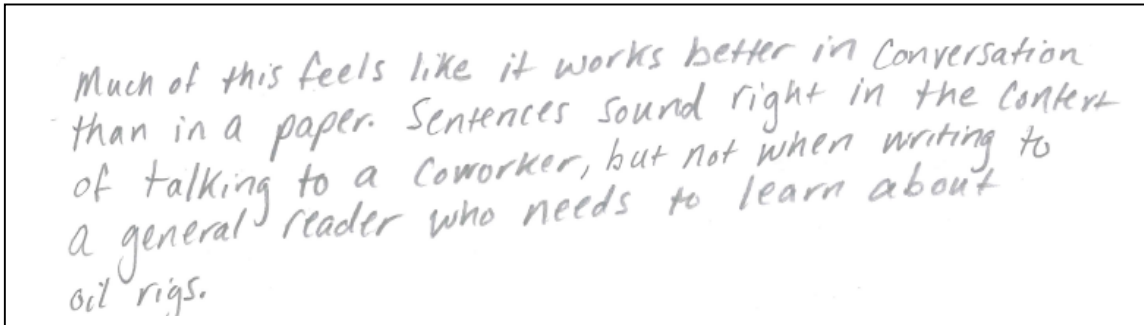 Much of this feels like it works better in Conversation
than in a paper. Sentences sound right in the Context
of talking to a Coworker, but not when writing to
a general reader who needs to learn about
oil rigs.